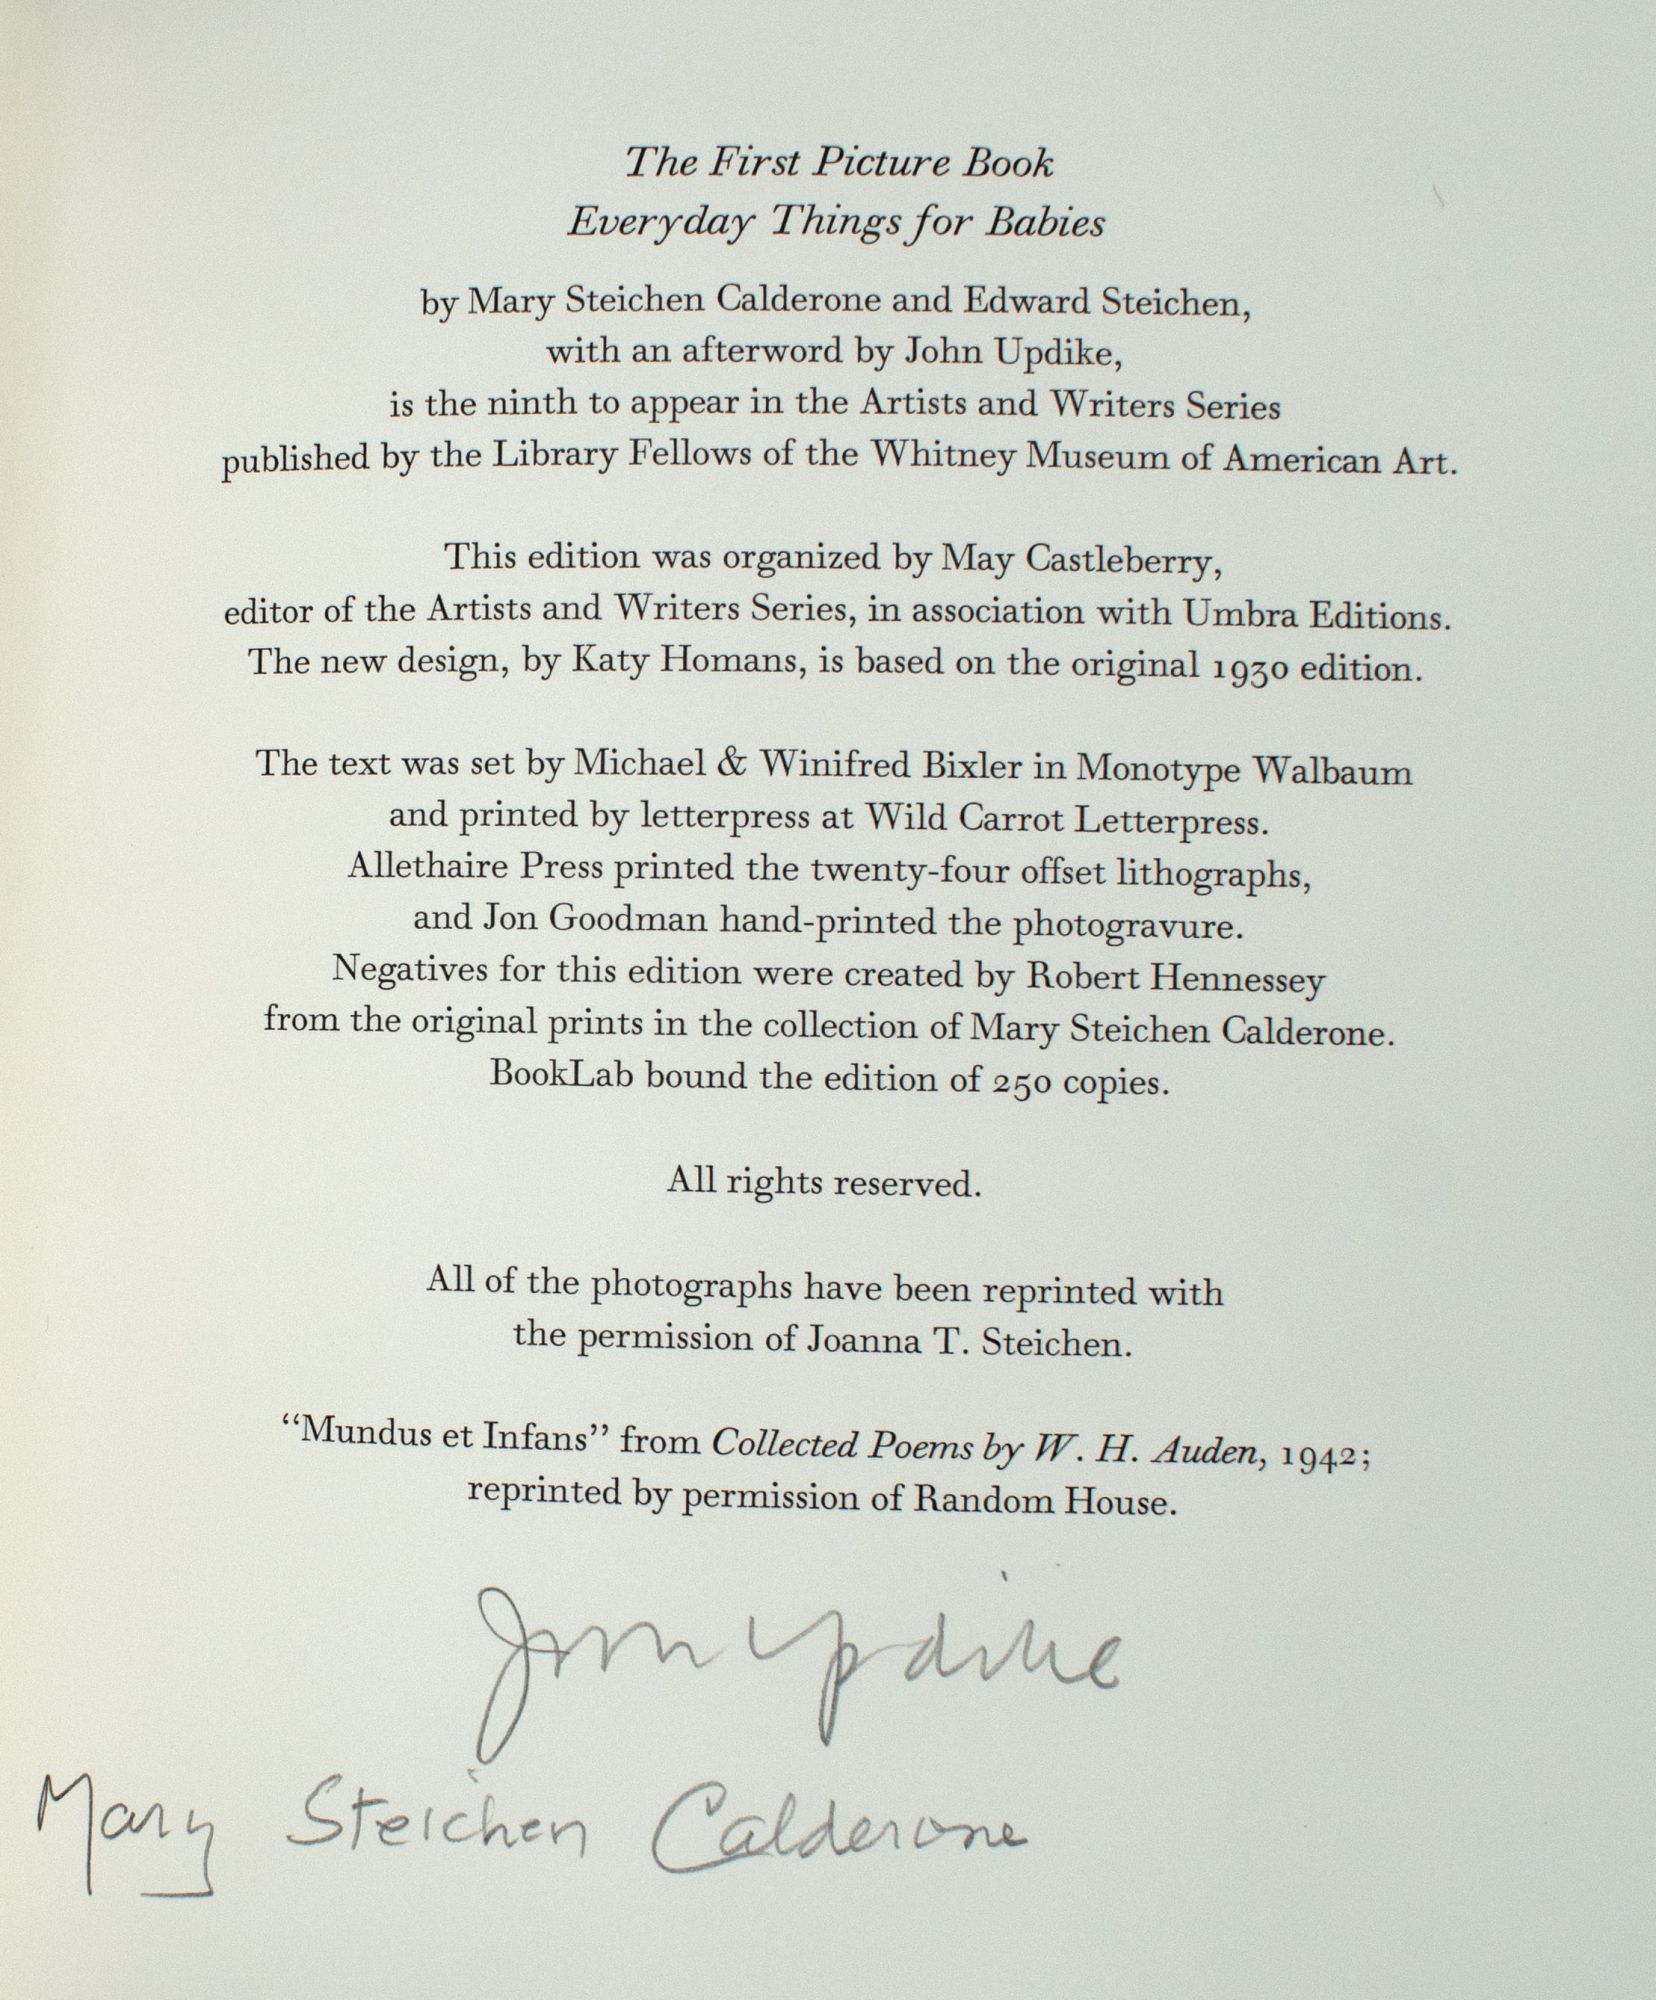 The First Picture Book
Everyday Things for Babies
by Mary Steichen Calderone and Edward Steichen,
with an afterword by John Updike,
is the ninth to appear in the Artists and Writers Series
published by the Library Fellows of the Whitney Museum of American Art.
This edition was organized by May Castleberry,
editor of the Artists and Writers Series, in association with Umbra Editions.
The new design, by Katy Homans, is based on the original 1930 edition.
The text was set by Michael & Winifred Bixler in Monotype Walbaum
and printed by letterpress at Wild Carrot Letterpress.
Allethaire Press printed the twenty-four offset lithographs,
and Jon Goodman hand-printed the photogravure.
Negatives for this edition were created by Robert Hennessey
from the original prints in the collection of Mary Steichen Calderone.
BookLab bound the edition of 250 copies.
All rights reserved.
All of the photographs have been reprinted with
the permission of Joanna T. Steichen.
“Mundus et Infans” from Collected Poems by W. H. Auden, 1942;
reprinted by permission of Random House.
John Updike
Mary Steichen Calderone